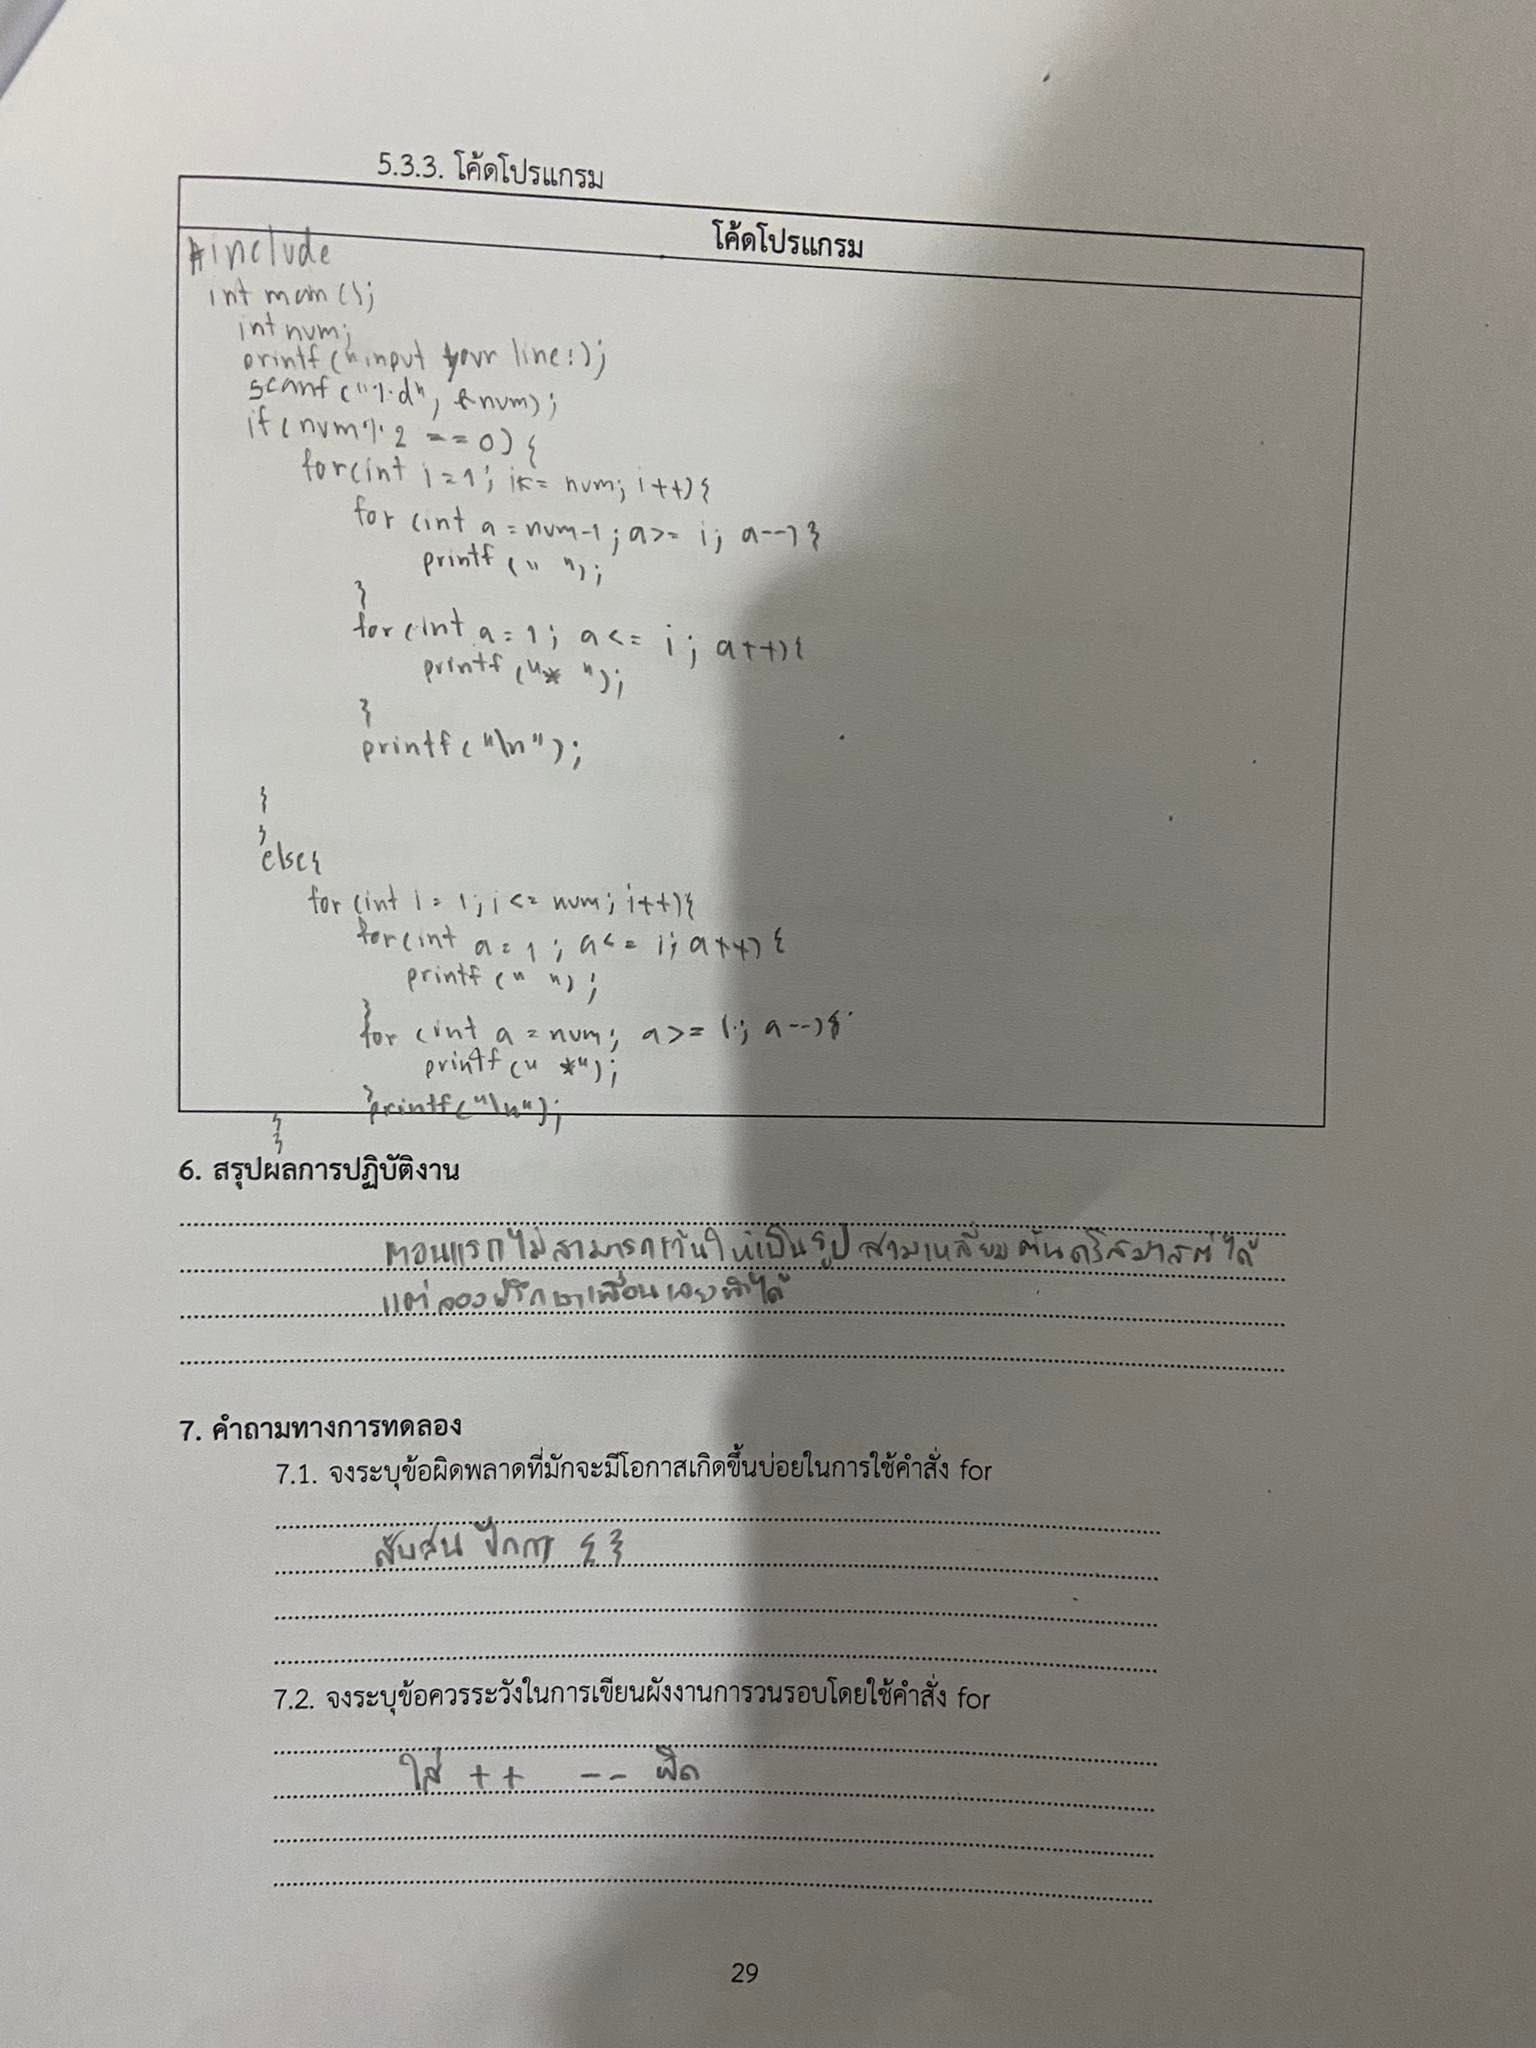 5.3.3. โค้ดโปรแกรม
โค้ดโปรแกรม
#include
int main();
int num;
printf("input your line:);
scanf("%d", &num);
if(num%2 ==0){
for(int i=1; i<= num; i++){
for (int a=num-1; a>= i; a--){
printf(" ");
}
for(int a=1; a<= i; a++){
printf("* ");
}
printf("\n");
}
}
else{
for(int i=1; i<= num; i++){
for(int a=1; a<= i; a++){
printf(" ");
}
for (int a=num; a>= i; a--){
printf(" *");
}printf("\n");
}
}
6. สรุปผลการปฏิบัติงาน
ตอนแรกไม่สามารถเว้นให้เป็นรูป สามเหลี่ยม ต้นคริสมาสต์ ได้
แต่ ลองปรึกษาเพื่อน ทำได้
7. คำถามทางการทดลอง
7.1. จงระบุข้อผิดพลาดที่มักจะมีโอกาสเกิดขึ้นบ่อยในการใช้คำสั่ง for
สับสน ปีกกา { }
7.2. จงระบุข้อควรระวังในการเขียนผังงานการวนรอบโดยใช้คำสั่ง for
ใส่ ++ -- ผิด
29